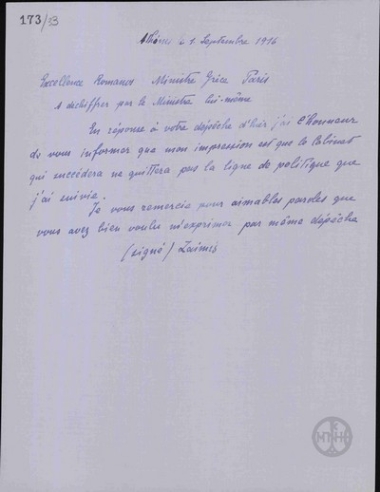 173/53
Athènes le 1 Septembre 1916
Excellence Romanos Ministre Grèce Paris
A déchiffrer par le Ministre lui-même
En réponse à votre dépêche d'hier j'ai l'honneur
de vous informer que mon impression est que le Cabinet
qui succédera ne quittera pas la ligne de politique que
j'ai suivie.
Je vous remercie pour aimables paroles que
vous avez bien voulu m'exprimer par même dépêche
(signé) Zaimis